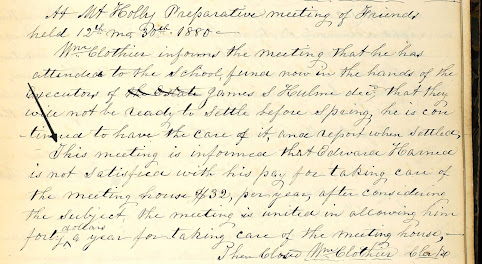 At Mt Holly Preparative meeting of Friends
held 12th mo 30th 1880 —
Wm Clothier informs the meeting that he has
attended to the School fund now in the hands of the
executors of the Estate James S Hulme decd, that they
will not be ready to settle before Spring, he is con-
tinued to have the care of it, and report when settled,
This meeting is informed that Edward Harned
is not satisfied with his pay for taking care of
the meeting house $32, per year, after considering
the subject the meeting is united in allowing him
forty dollars a year for taking care of the meeting house, —
Then Closed Wm Clothier Clerk